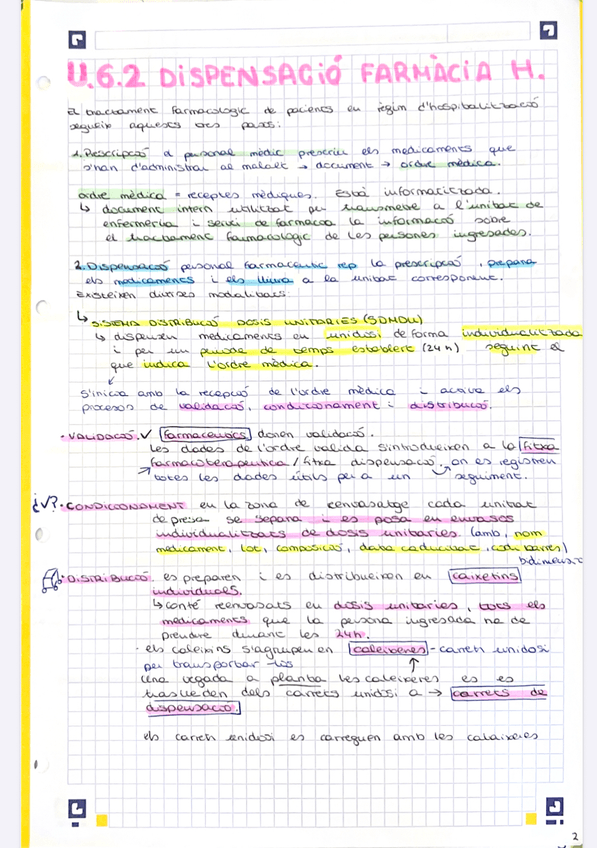 U.6.2 DISPENSACIÓ FARMÀCIA H.
El tractament farmacològic de pacients en règim d'hospitalització
segueix aquests tres passos:
1. Prescripció el personal mèdic prescriu els medicaments que
s'han d'administrar al malalt → document → ordre mèdica.
ordre mèdica = receptes mèdiques. Està informatitzada.
↳ document intern utilitzat per transmetre a l'unitat de
enfermeria i servei de farmàcia la informació sobre
el tractament farmacològic de les persones ingresades.
2. Dispensació personal farmaceutic rep la prescripció, prepara
els medicaments i els lliura a la unitat corresponent.
Existeixen diverses modalitats:
↳ SISTEMA DISTRIBUCIÓ DOSIS UNITARIES (SDMDU)
↳ dispensen medicaments en unidosi de forma individualitzada
i per un periode de temps establert (24 h) seguint el
que indica l'ordre mèdica.
↙
S'inicia amb la recepció de l'ordre mèdica i activa els
processos de validació, condicionament i distribució.
· VALIDACIÓ. ✓ farmaceutics donen validació.
Les dades de l'ordre valida s'introdueixen a la fitxa
farmacoterapeutica / fitxa dispensació, on es registren
totes les dades útils per a un seguiment.
¿✓? · CONDICIONAMENT en la zona de reenvasatge cada unitat
de presa se separa i es posa en envasos
individualitzats de dosis unitaries. (amb, nom
medicament, lot, composició, data caducitat, codi barres)
· DISTRIBUCIÓ. es preparen i es distribueixen en caixetins
individuals.
↳ conté reenvasats en dosis unitaries, tots els
medicaments que la persona ingresada ha de
prendre durant les 24h.
· els calaixins s'agrupen en calaixeres - carretı unidosi
per transportar-los ↑
Una vegada a planta les calaixeres es es
traslleden dels carrets unidosi a → carrets de
dispensació.
els carrets unidosi es carreguen amb les calaixeres
2